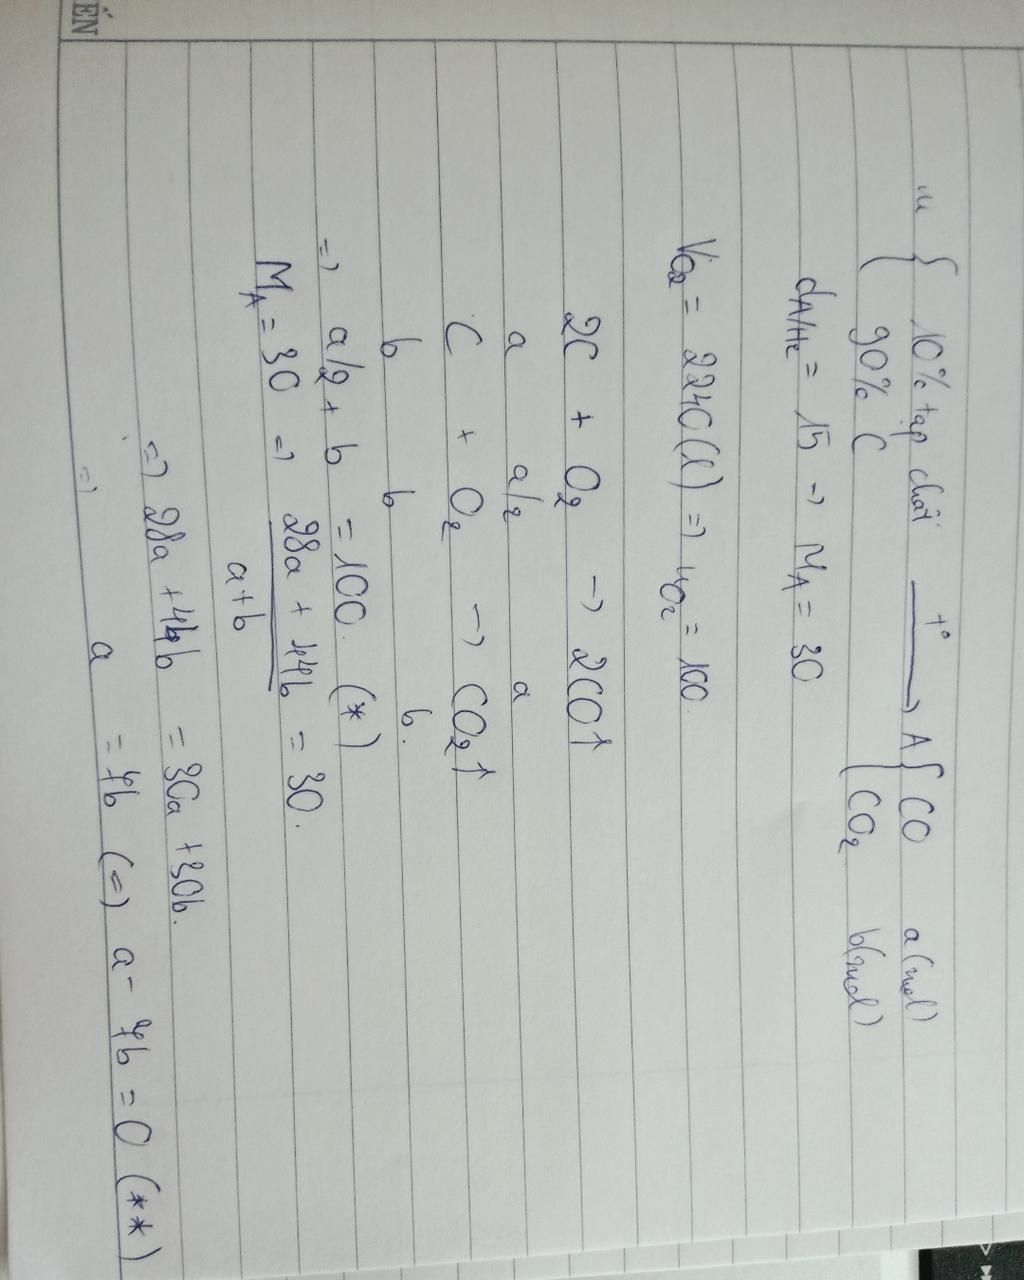 ẾN
m { 10% tạp chất —t°→ A { CO a(mol)
{ 90% C { CO₂ b(mol)
dA/He = 15 → MA = 30
VO₂ = 2240(l) => nO₂ = 100.
2C + O₂ → 2CO↑
a a/2 a
C + O₂ → CO₂↑
b b b.
=> a/2 + b = 100. (*)
MA = 30 => 28a + 44b = 30.
a+b
=> 28a + 44b = 30a + 30b.
=> a = 7b (=) a - 7b = 0 (**)